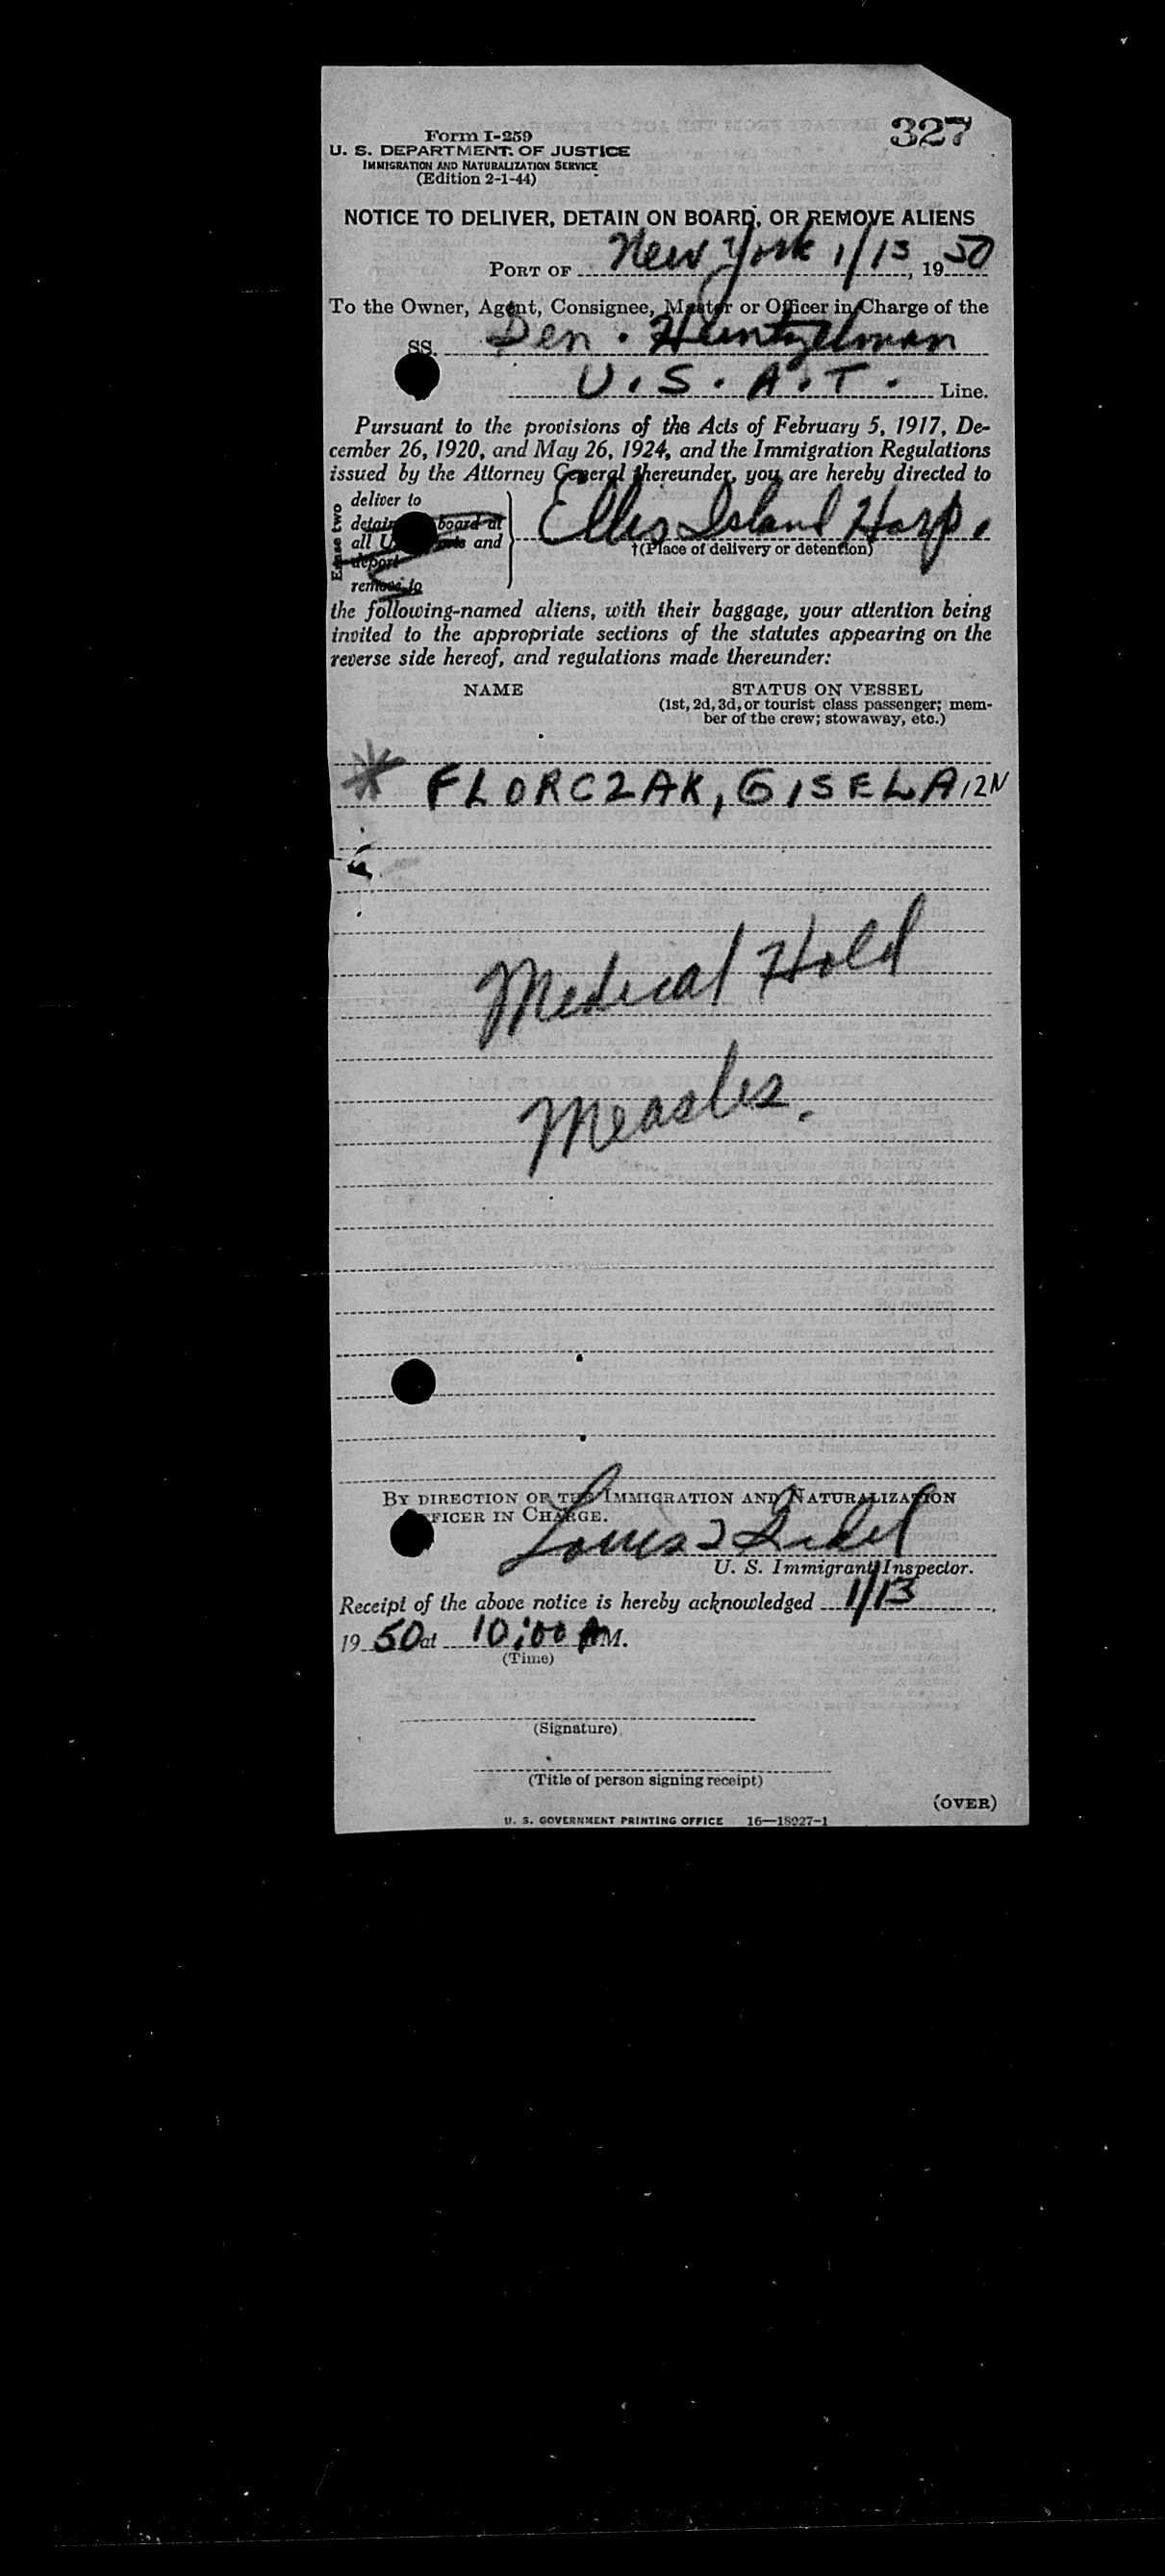 327
Form I-259
U. S. DEPARTMENT OF JUSTICE
IMMIGRATION AND NATURALIZATION SERVICE
(Edition 2-1-44)
NOTICE TO DELIVER, DETAIN ON BOARD, OR REMOVE ALIENS
PORT OF New York 1/13, 1950
To the Owner, Agent, Consignee, Master or Officer in Charge of the
SS. Gen. Heintzelman
U.S.A.T. Line.
Pursuant to the provisions of the Acts of February 5, 1917, De-
cember 26, 1920, and May 26, 1924, and the Immigration Regulations
issued by the Attorney General thereunder, you are hereby directed to
Erase two
deliver to
detain board at
all U. and
deport
remove to
Ellis Island Hosp.
†(Place of delivery or detention)
the following-named aliens, with their baggage, your attention being
invited to the appropriate sections of the statutes appearing on the
reverse side hereof, and regulations made thereunder:
NAME STATUS ON VESSEL
(1st, 2d, 3d, or tourist class passenger; mem-
ber of the crew; stowaway, etc.)
* FLORCZAK, GISELA 12N
Medical Hold
Measles.
BY DIRECTION OF THE IMMIGRATION AND NATURALIZATION
OFFICER IN CHARGE.
Louis
U. S. Immigrant Inspector.
Receipt of the above notice is hereby acknowledged 1/13,
1950 at 10:00 AM.
(Time)
(Signature)
(Title of person signing receipt)
(OVER)
U. S. GOVERNMENT PRINTING OFFICE 16—18027-1